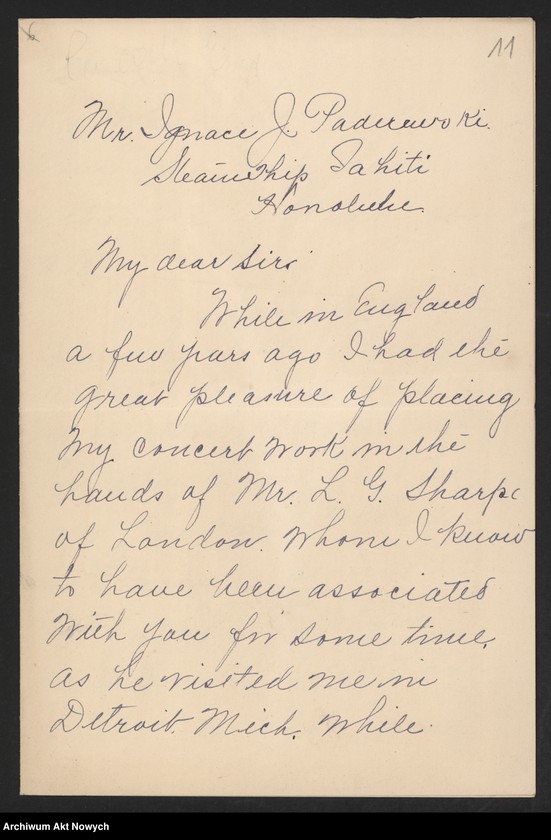 11
Mr. Ignace J. Paderewski.
Steamship Tahiti
Honolulu.
My dear Sir:
While in England
a few years ago I had the
great pleasure of placing
my concert work in the
hands of Mr. L. G. Sharpe
of London. Whom I know
to have been associated
with you for some time.
as he visited me in
Detroit. Mich. while
Archiwum Akt Nowych